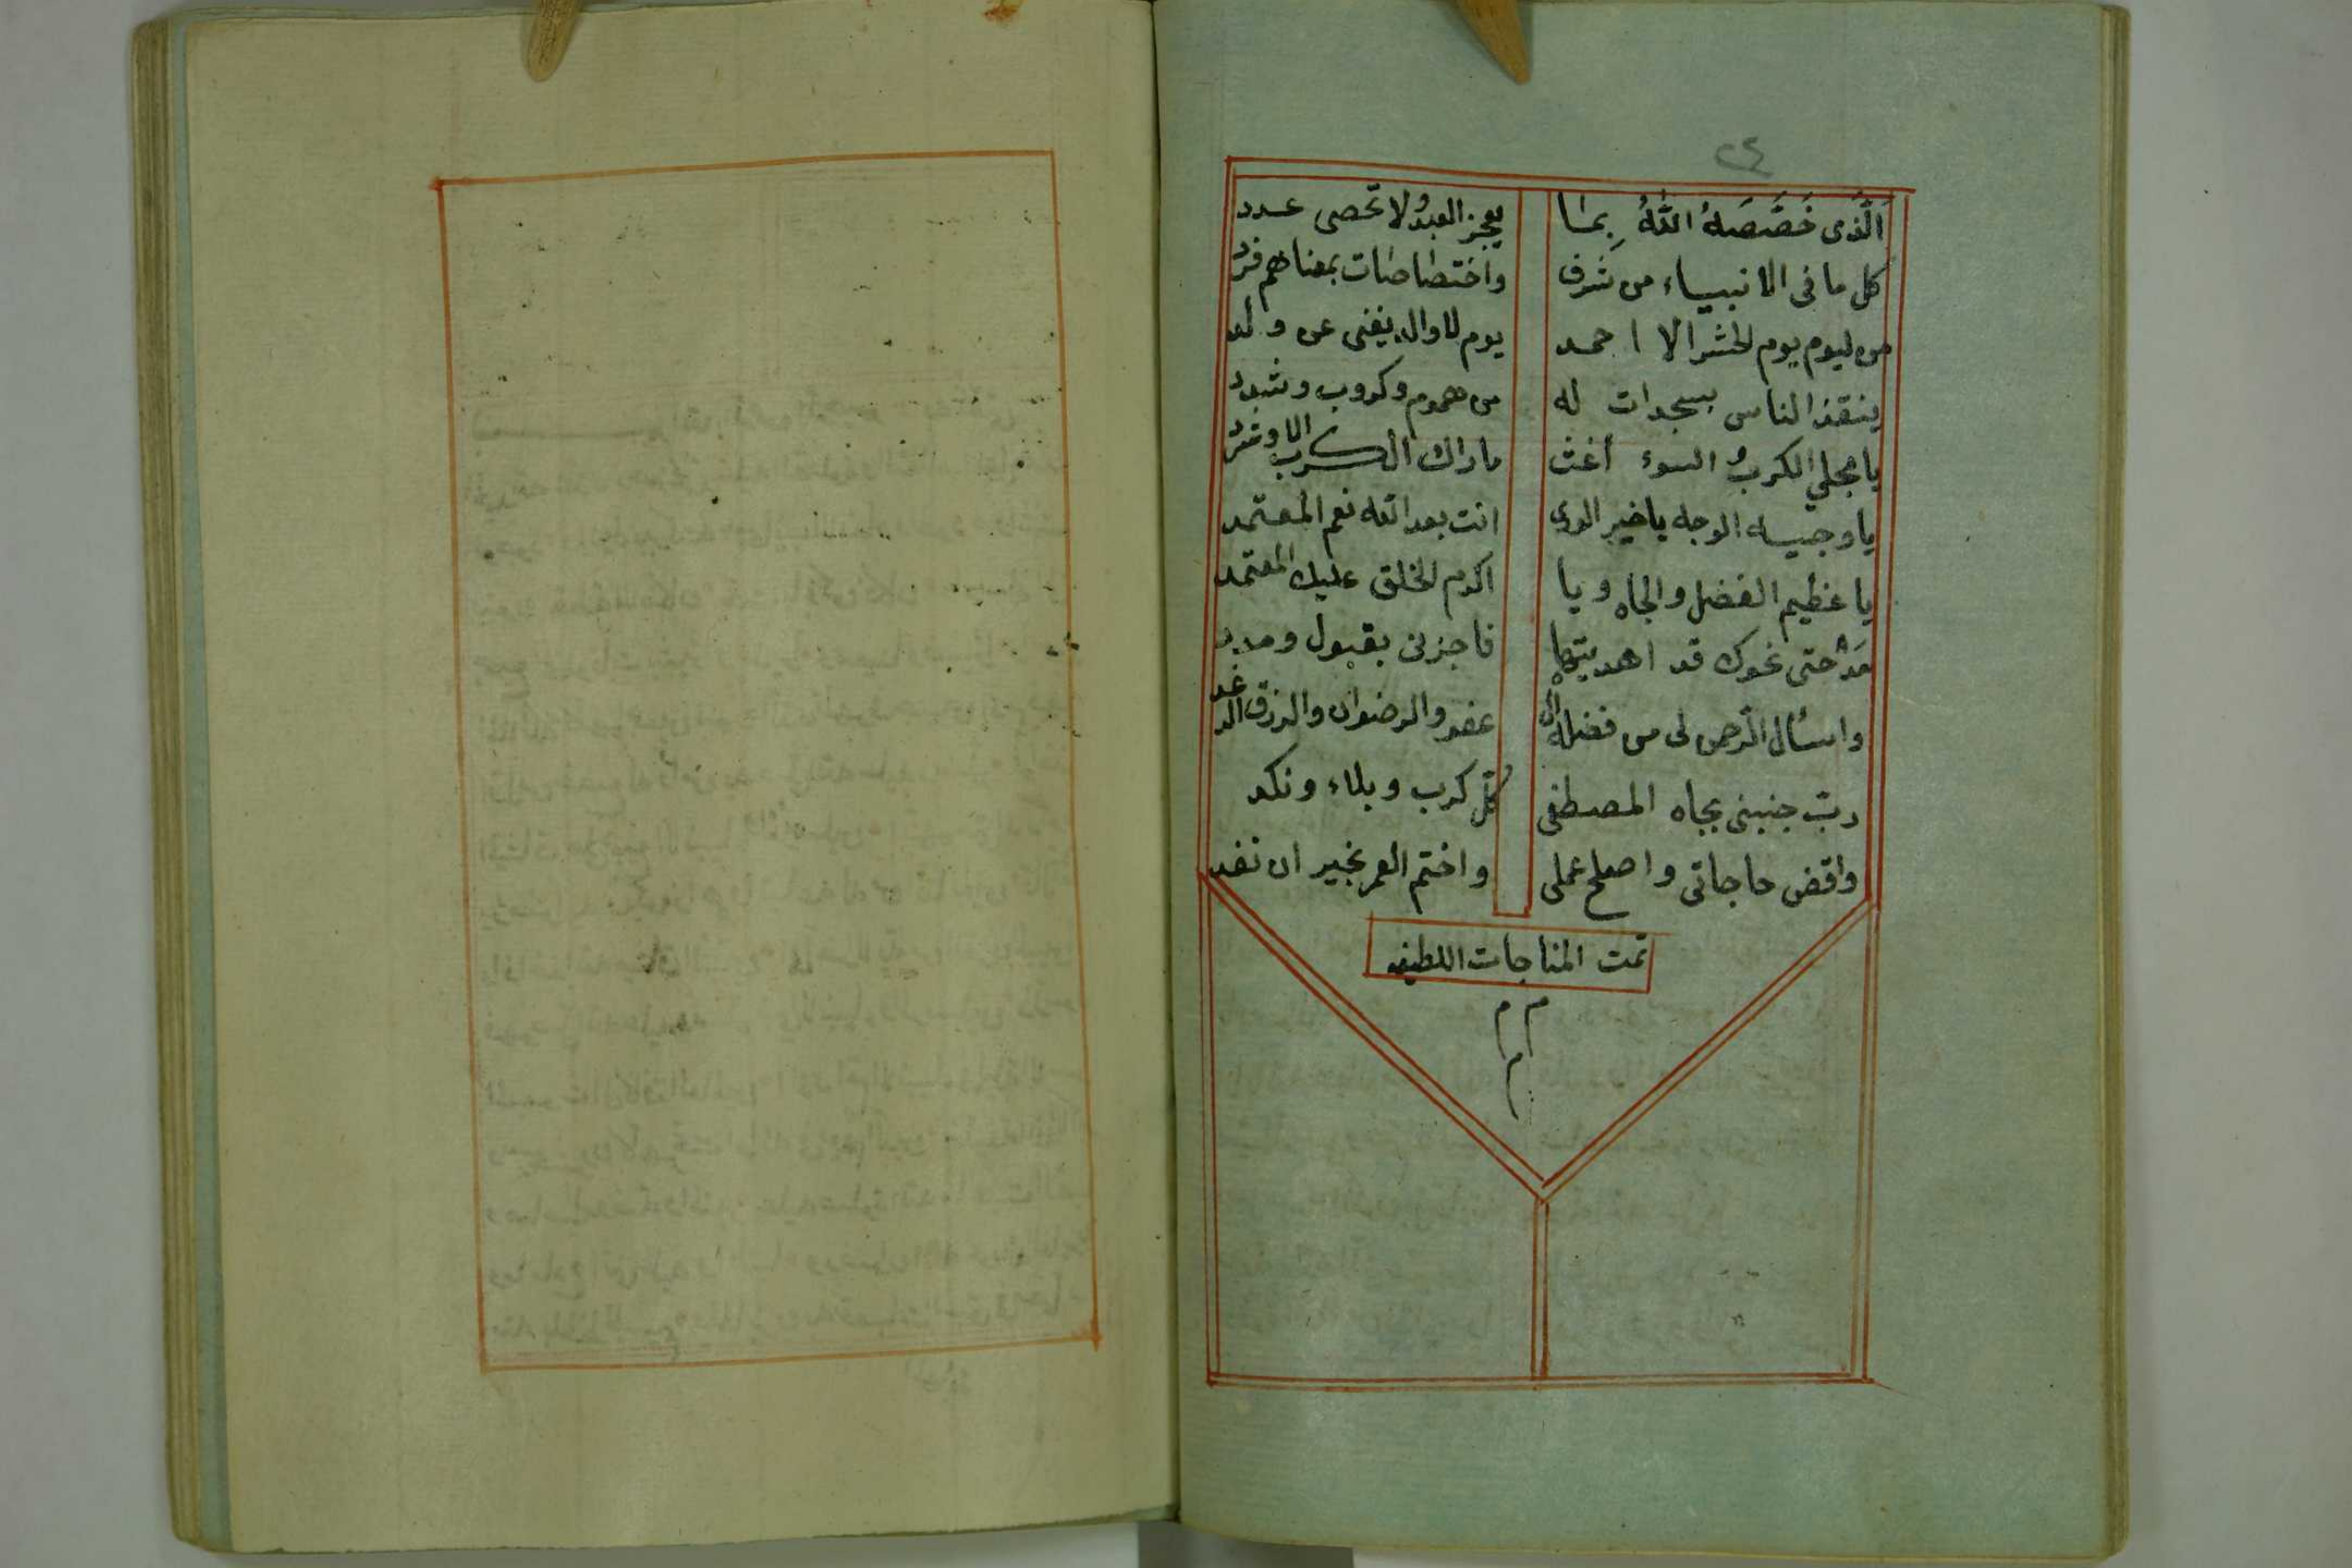 ٢٤
اَلَّذى خَصَّصَهُ اللّٰهُ بِما يعجز العبدُ ولا تحصى عدد
كل ما فى الانبياء من شرف واختصاصات بمعناهم فرد
من ليوم يوم الحشر الا احمد يوم لا والد يغنى عن ولد
ينقذ الناس بسجدات له من هموم وكروب وشدد
يا مجلي الكرب السوء أغث ما دراك الكرب الا وشرد
يا وجيه الوجه يا خير الورى انت بعد الله نعم المعتمد
يا عظيم الفضل والجاه ويا اكرم الخلق عليك المعتمد
مدحتى نحوك قد اهديتها فاجزنى بقبول ومدد
واسأل الرّحمن لى من فضله ال عفو والرضوان والرزق الرغد
ربّ جنبنى بجاه المصطفى كلّ كرب وبلاء ونكد
واقض حاجاتى واصلح عملى واختم العمر بخير ان نفد
تمت المناجات اللطيفه
م م
م